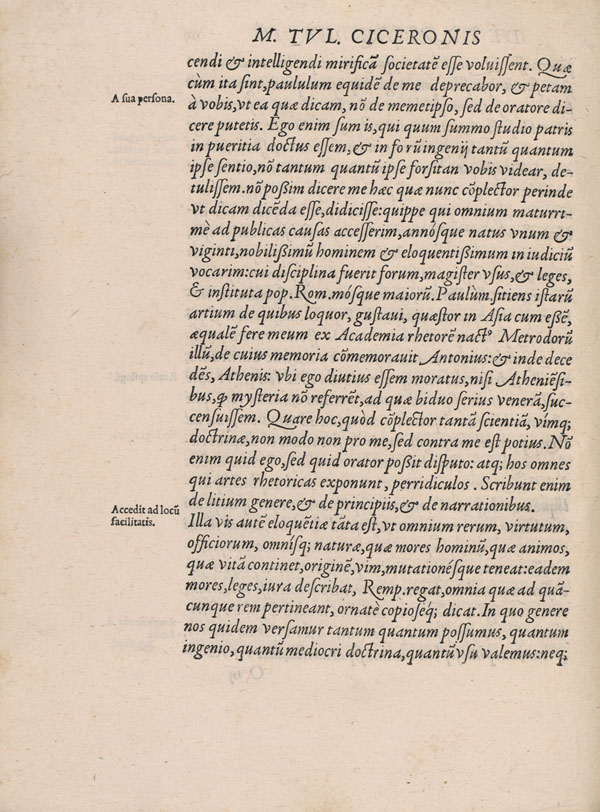 M. TVL. CICERONIS
cendi & intelligendi mirificā societatē esse voluissent. Quæ
cùm ita sint, paululum equidē de me deprecabor, & petam
A sua persona.
à vobis, vt ea quæ dicam, nō de memetipso, sed de oratore di-
cere putetis. Ego enim sum is, qui quum summo studio patris
in pueritia doctus essem, & in forū ingenij tantū quantum
ipse sentio, nō tantum quantū ipse forsitan vobis videar, de-
tulissem. nō possim dicere me hæc quæ nunc cōplector perinde
vt dicam dicēda esse, didicisse: quippe qui omnium maturri-
mè ad publicas causas accesserim, annósque natus vnum &
viginti, nobilissimū hominem & eloquentissimum in iudiciū
vocarim: cui disciplina fuerit forum, magister vsus, & leges,
& instituta pop. Rom. mósque maiorū. Paulùm sitiens istarū
artium de quibus loquor, gustaui, quæstor in Asia cum essē,
æqualē fere meum ex Academia rhetorē nactꝰ Metrodorū
illū, de cuius memoria cōmemorauit Antonius: & inde dece
dēs, Athenis: vbi ego diutius essem moratus, nisi Atheniēsi-
bus, ꝙ mysteria nō referrēt, ad quæ biduo serius venerā, suc-
censuissem. Quare hoc, quòd cōplector tantā scientiā, vimq;
doctrinæ, non modo non pro me, sed contra me est potius. Nō
enim quid ego, sed quid orator possit disputo: atq; hos omnes
qui artes rhetoricas exponunt, perridiculos. Scribunt enim
de litium genere, & de principiis, & de narrationibus.
Accedit ad locū
facilitatis.
Illa vis autē eloquētiæ tāta est, vt omnium rerum, virtutum,
officiorum, omnísq; naturæ, quæ mores hominū, quæ animos,
quæ vitā continet, originē, vim, mutationésque teneat: eadem
mores, leges, iura describat, Remp. regat, omnia quæ ad quā-
cunque rem pertineant, ornatè copioseq́; dicat. In quo genere
nos quidem versamur tantum quantum possumus, quantum
ingenio, quantū mediocri doctrina, quantū vsu valemus: neq;